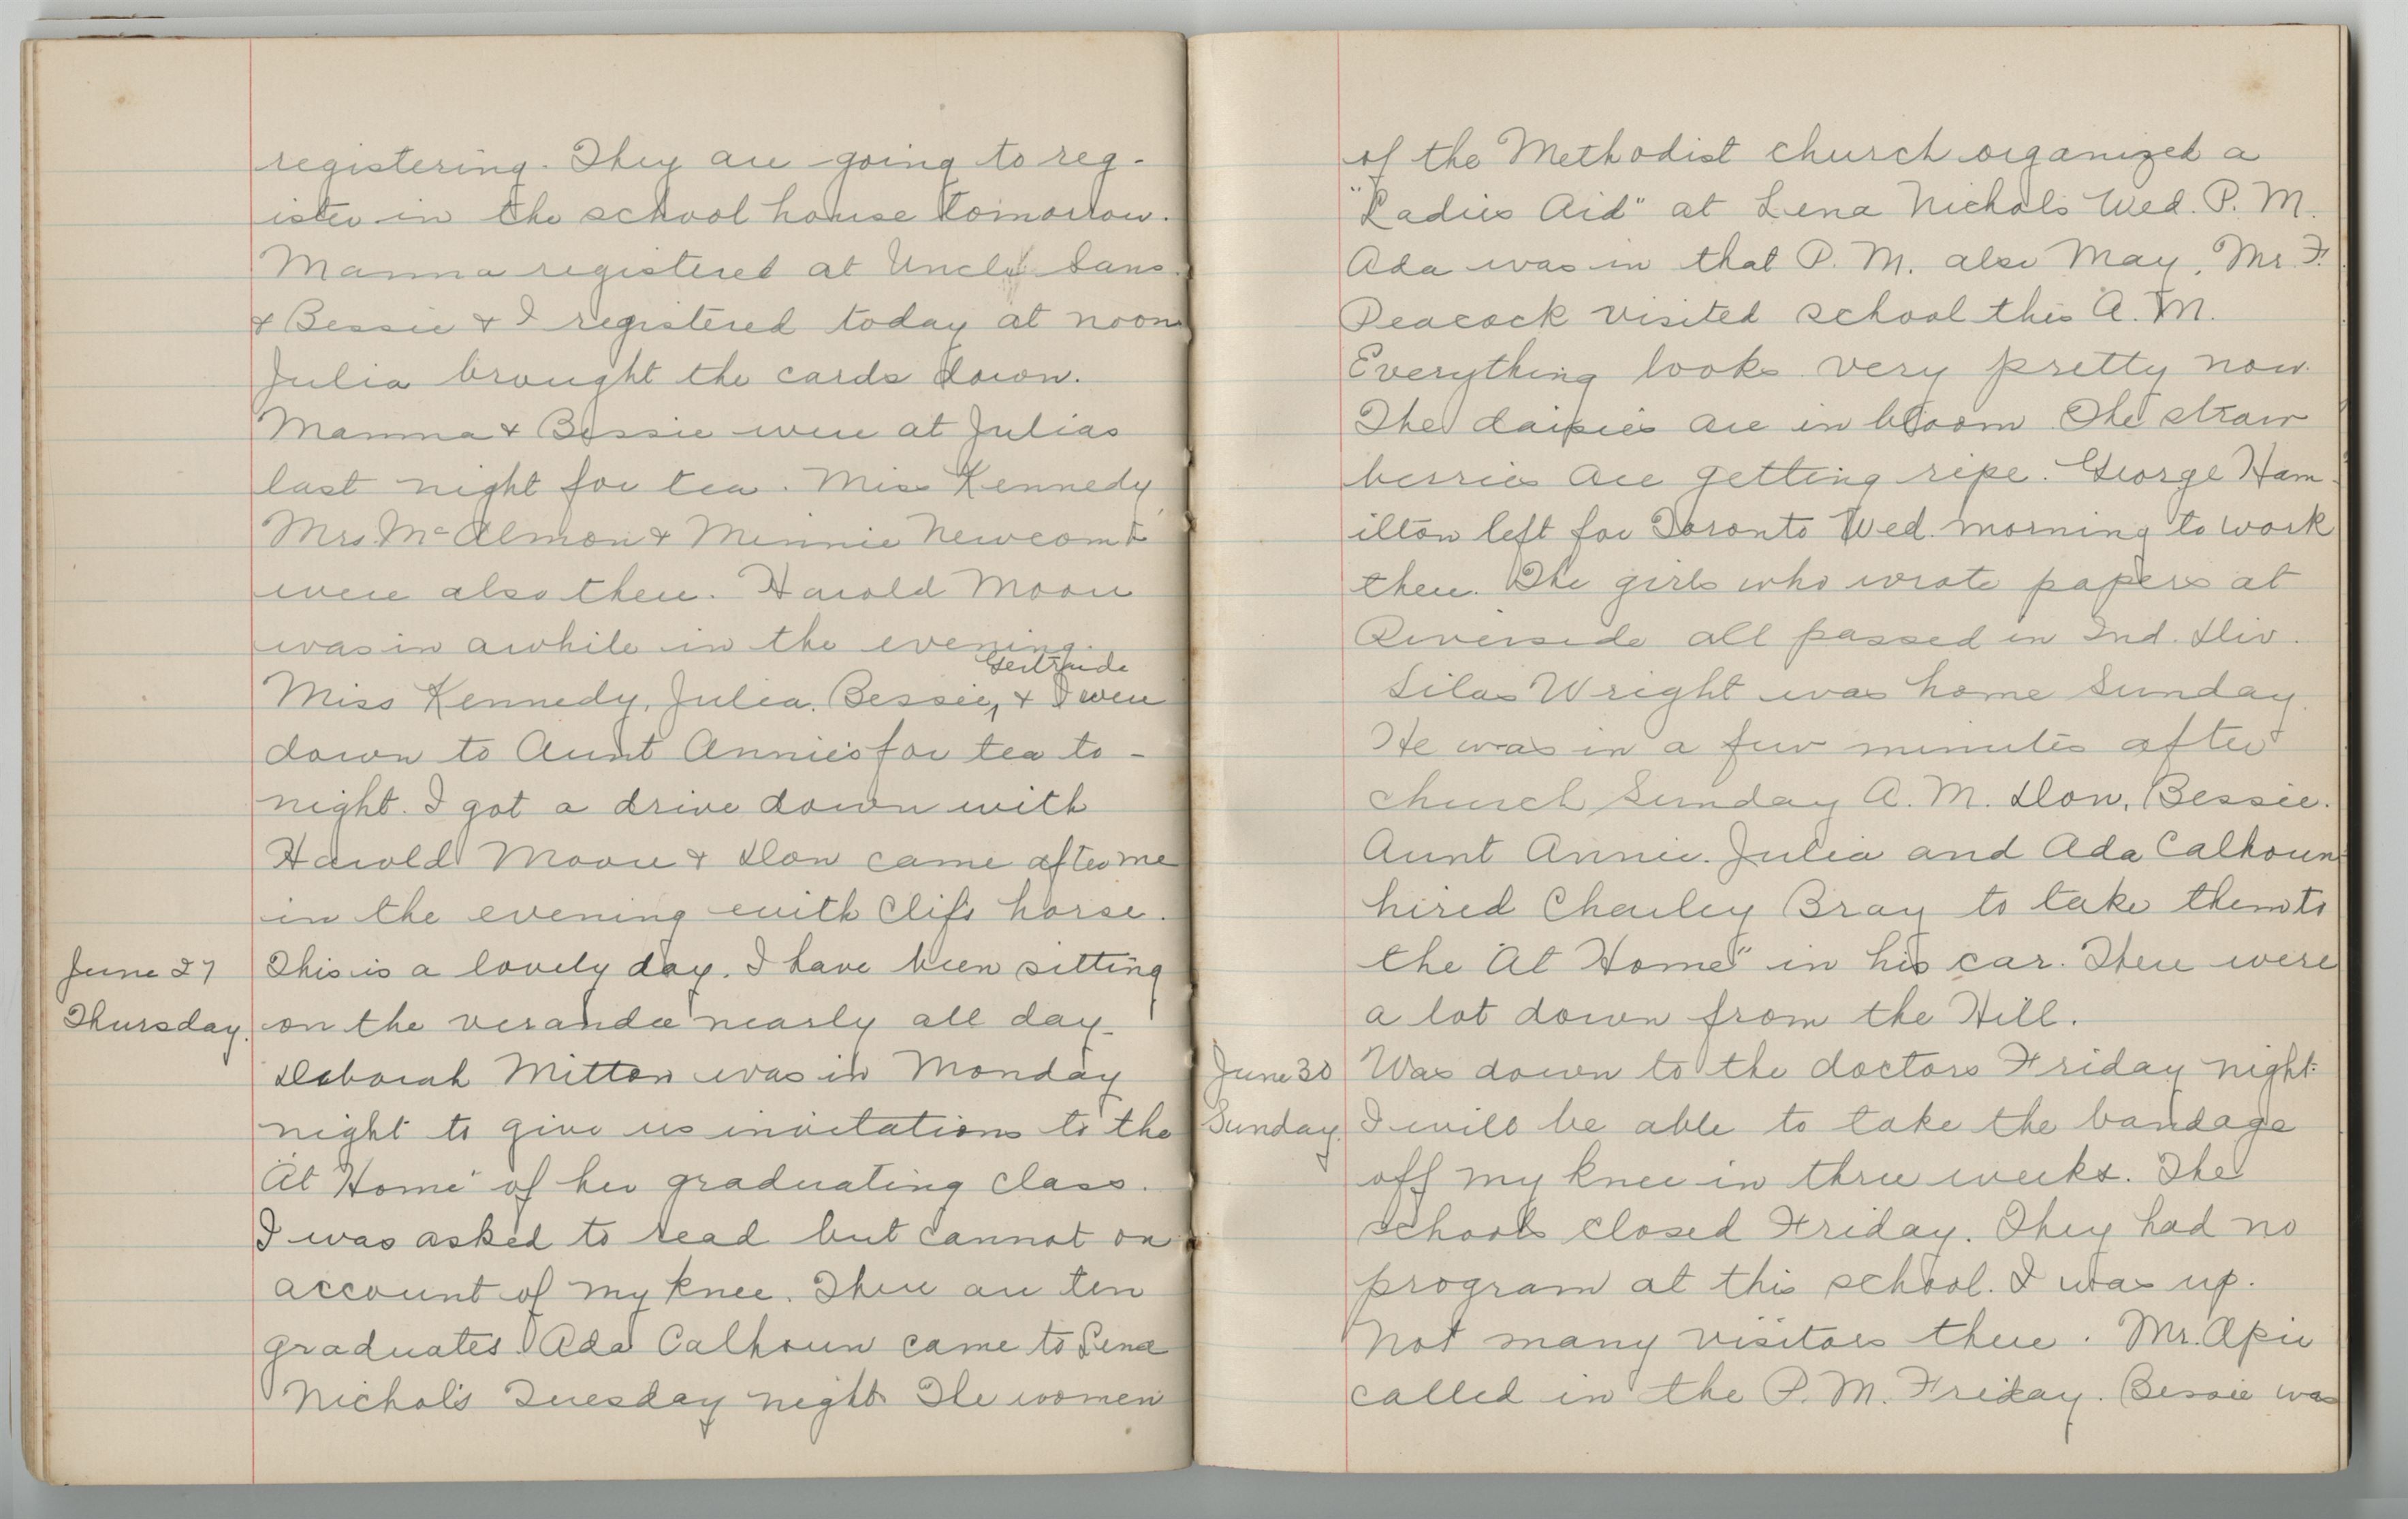 registering. They are going to reg-
ister in the school house tomorrow.
Mamma registered at Uncle Sans.
& Bessie & I registered today at noon
Julia brought the cards down.
Mamma & Bessie were at Julias
last night for tea. Miss Kennedy,
Mrs Mc Almon & Minnie Newcomb
were also there. Harold Moore
was in awhile in the evening.
Gertrude
Miss Kennedy, Julia, Bessie, & I were
down to Aunt Annie's for tea to-
night. I got a drive down with
Harold Moore & Don came after me
in the evening with Clifs horse.
June 27
This is a lovely day. I have been sitting
Thursday.
on the veranda nearly all day.
Deborah Mitton was in Monday
night to give us invitations to the
"At Home" of her graduating class.
I was asked to read but cannot on
account of my knee. There are ten
graduates. Ada Calhoun came to Lena
Nichol's Tuesday night. The women
of the Methodist church organized a
"Ladies Aid" at Lena Nichols Wed. P. M.
Ada was in that P. M. also May. Mr. F.
Peacock visited school this A. M.
Everything looks very pretty now.
The daisies are in bloom. The straw
berries are getting ripe. George Ham-
ilton left for Toronto Wed. morning to work
there. The girls who wrote papers at
Riverside all passed in 2nd. Div.
Silas Wright was home Sunday.
He was in a few minutes after
church Sunday A. M. Don, Bessie.
Aunt Annie. Julia and Ada Calhoun
hired Charley Bray to take them to
the "At Home" in his car. There were
a lot down from the Hill.
June 30
Was down to the doctors Friday night.
Sunday.
I will be able to take the bandage
off my knee in three weeks. The
schools closed Friday. They had no
program at this school. I was up.
Not many visitors there. Mr.
called in the P. M. Friday. Bessie was